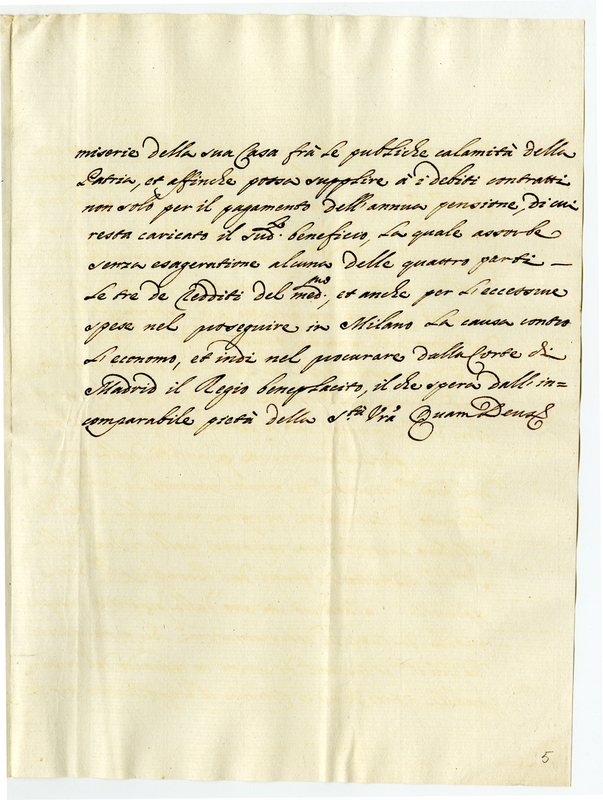 miserie della sua Casa frà le publiche calamità della
Patria, et affinche possa supplire à i debiti contratti
non solo per il pagamento dell'annua pensione, di cui
resta caricato il sud.to beneficio, la quale assorbe
senza esageratione alcuna delle quattro parti —
le tre de redditi del med.mo, et anche per l'eccessive
spese nel proseguire in Milano la causa contro
l'economo, et indi nel procurare dalla Corte di
Madrid il Regio beneplacito, il che spera dall'in=
comparabile pietà della S.tà Vrã Quam Deus
5